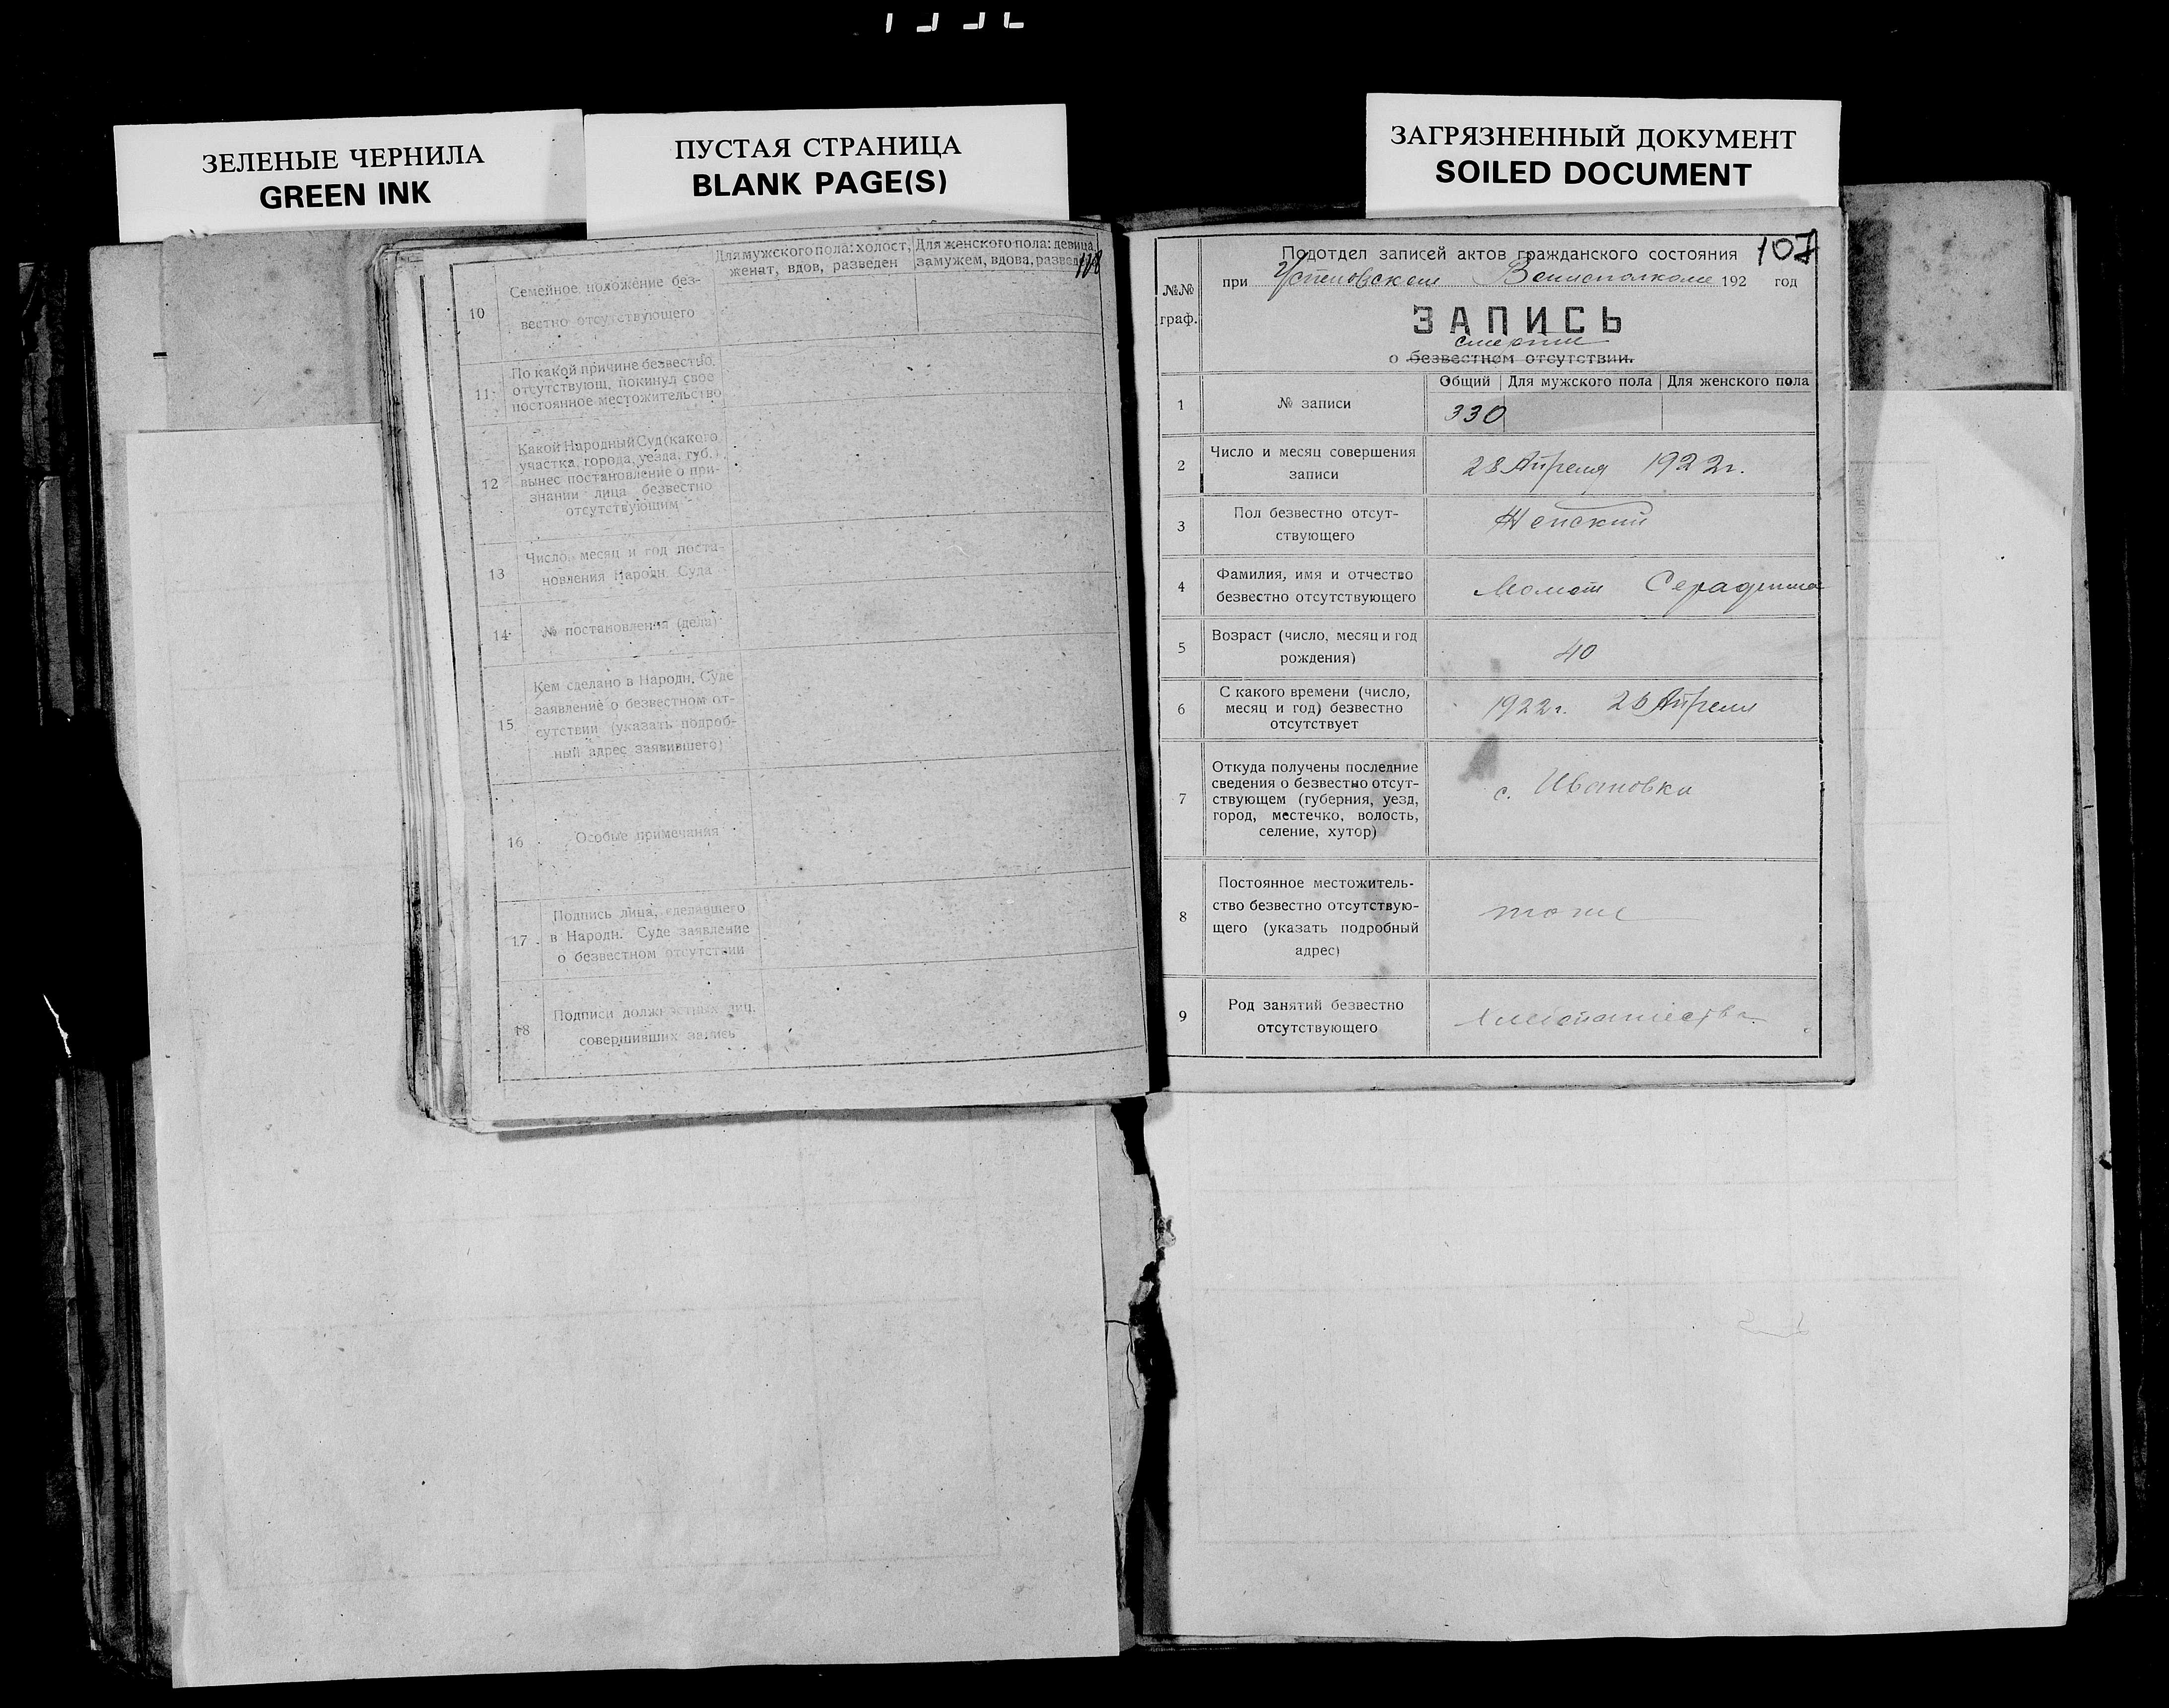 ЗЕЛЕНЫЕ ЧЕРНИЛА
GREEN INK
ПУСТАЯ СТРАНИЦА
BLANK PAGE(S)
ЗАГРЯЗНЕННЫЙ ДОКУМЕНТ
SOILED DOCUMENT
Для мужского пола: холост, женат, вдов, разведен
Для женского пола: девица, замужем, вдова, развед
108
10
Семейное положение без-
вестно отсутствующего
11
По какой причине безвестно
отсутствующ. покинул свое
постоянное местожительство
12
Какой Народный Суд (какого
участка, города, уезда, губ.)
вынес постановление о при-
знании лица безвестно
отсутствующим
13
Число, месяц и год поста-
новления Народн. Суда
14
№ постановления (дела)
15
Кем сделано в Народн. Суде
заявление о безвестном от-
сутствии (указать подроб-
ный адрес заявившего)
16
Особые примечания
17
Подпись лица, сделавшего
в Народн. Суде заявление
о безвестном отсутствии
18
Подписи должностных лиц,
совершивших запись
107
№№
граф.
Подотдел записей актов гражданского состояния
при Волисполкоме 192 год
ЗАПИСЬ
смерти
о безвестном отсутствии.
Общий Для мужского пола Для женского пола
1
№ записи
330
2
Число и месяц совершения
записи
28 Апреля 1922 г.
3
Пол безвестно отсут-
ствующего
Женский
4
Фамилия, имя и отчество
безвестно отсутствующего
Момот
5
Возраст (число, месяц и год
рождения)
40
6
С какого времени (число,
месяц и год) безвестно
отсутствует
1922 г. 26 Апреля
7
Откуда получены последние
сведения о безвестно отсут-
ствующем (губерния, уезд,
город, местечко, волость,
селение, хутор)
с. Ивановка
8
Постоянное местожитель-
ство безвестно отсутствую-
щего (указать подробный
адрес)
тоже
9
Род занятий безвестно
отсутствующего